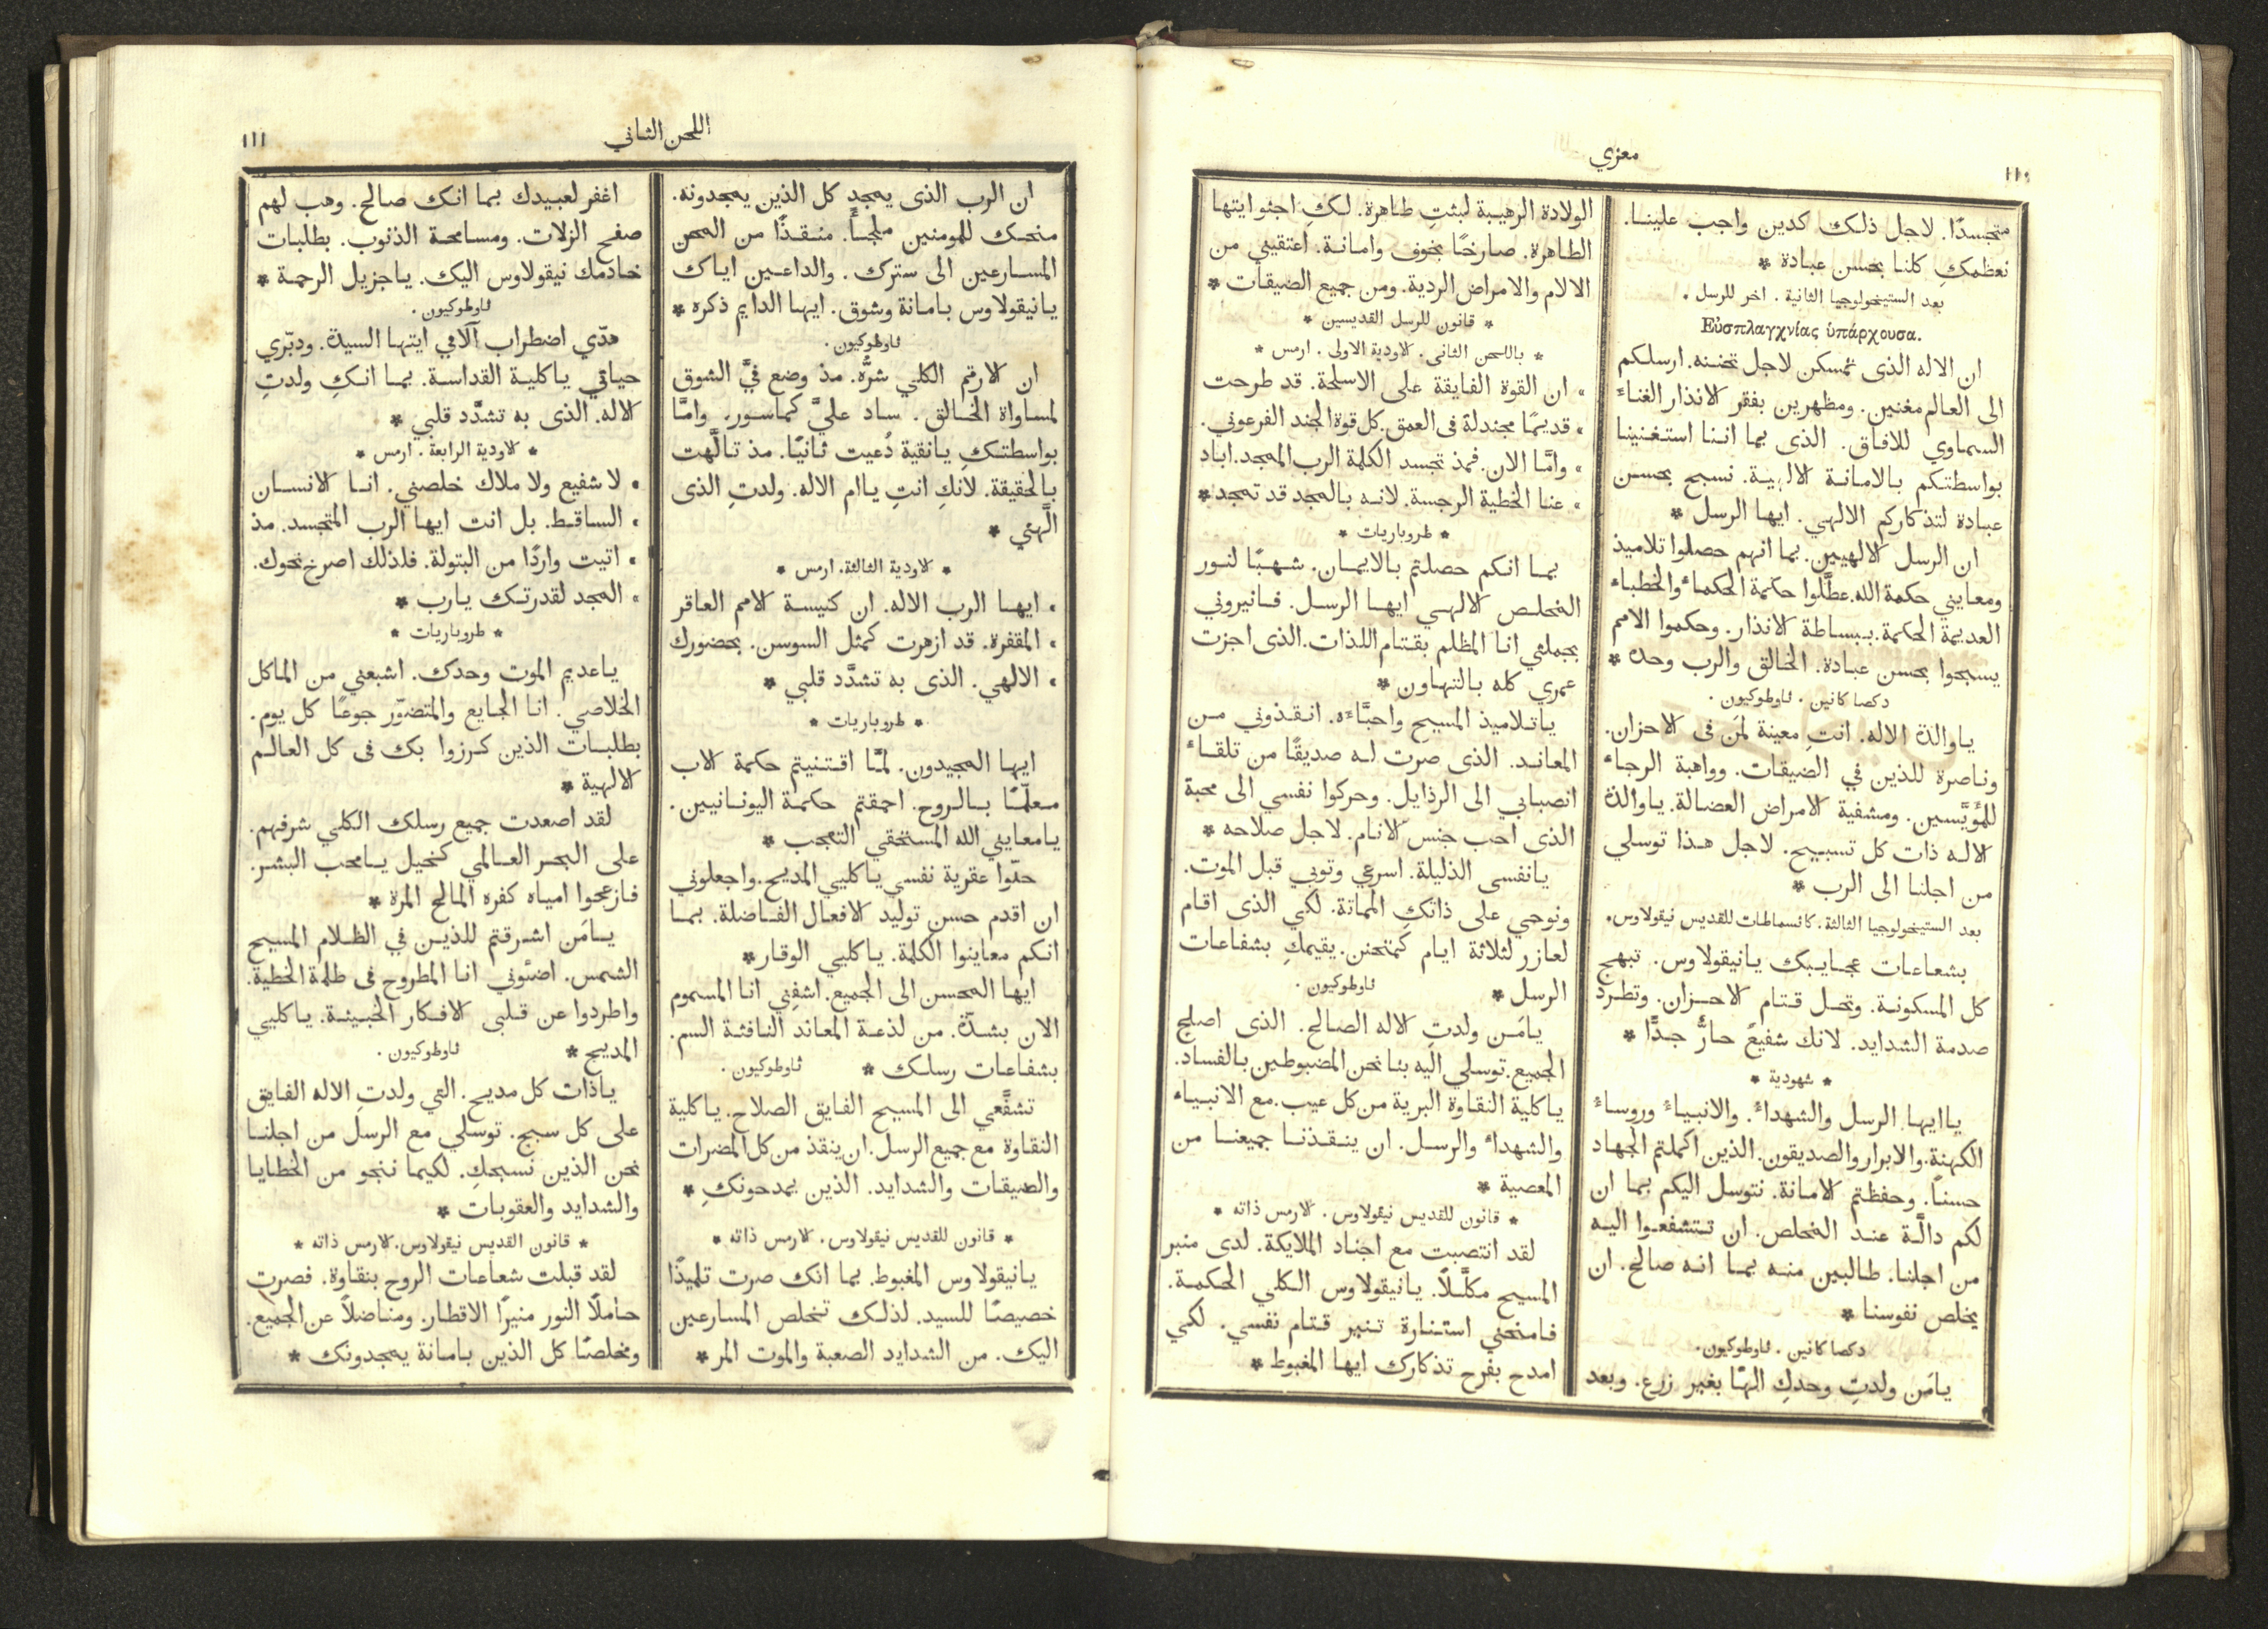 معزي
١١٠
متجسدًا. لاجل ذلك كدين واجب علينا.
نعظمكِ كلنا بحسن عبادة *
بعد الستيخولوجيا الثانية. اخر للرسل.
Εὐσπλαγχνίας ὑπάρχουσα.
ان الاله الذى تمسكن لاجل تحننه. ارسلكم
الى العالم مغنين. ومظهرين بفقر الانذار الغناءَ
السماوي للافاق. الذى بما اننا استغنينا
بواسطتكم بالامانة الالهية. نسبح بحسن
عبادة لتذكاركم الالهي. ايها الرسل *
ان الرسل الالهيين. بما انهم حصلوا تلاميذ
ومعايني حكمة الله. عطَّلوا حكمة الحكماء والخطباء
العديمة الحكمة. ببساطة الانذار. وحكموا الامم
يسبحوا بحسن عبادة. الخالق والرب وحده *
دكصا كانين. ثاوطوكيون.
ياوالدة الاله. انتِ معينة لمَن فى الاحزان.
وناصرة للذين في الضيقات. وواهبة الرجاء
للمُؤيَّسين. ومشفية الامراض العضالة. ياوالدة
الاله ذات كل تسبيح. لاجل هذا توسلي
من اجلنا الى الرب *
بعد الستيخولوجيا الثالثة. كانسماطات للقديس نيقولاوس.
بشعاعات عجايبك يانيقولاوس. تبهج
كل المسكونة. وتحل قتام الاحزان. وتطرد
صدمة الشدايد. لانك شفيعٌ حارٌّ جدًّا *
* شهودية *
ياايها الرسل والشهداءُ. والانبياءُ وروساءُ
الكهنة. والابرار والصديقون. الذين اكملتم الجهاد
حسنًا. وحفظتم الامانة. نتوسل اليكم بما ان
لكم دالَّة عند المخلص. ان تتشفعوا اليه
من اجلنا. طالبين منه بما انه صالح. ان
يخلص نفوسنا *
دكصا كانين. ثاوطوكيون.
يامَن ولدتِ وحدكِ الهًا بغير زرع. وبعد
الولادة الرهيبة لبثتِ طاهرة. لكِ اجثو ايتها
الطاهرة. صارخًا بخوف وامانة. اعتقيني من
الالام والامراض الردية. ومن جميع الضيقات *
* قانون للرسل القديسين *
* باللحن الثانى. الاودية الاولى. ارمس *
» ان القوة الفايقة على الاسلحة. قد طرحت
» قديمًا مجندلة فى العمق. كل قوة الجند الفرعوني.
» وامَّا الان. فمذ تجسد الكلمة الرب الممجد. اباد
» عنا الخطية الرجسة. لانه بالمجد قد تمجد *
* طروباريات *
بما انكم حصلتم بالايمان. شهبًا لنور
المخلص الالهي ايها الرسل. فانيروني
بجملتي انا المظلم بقتام اللذات. الذى اجزت
عمري كله بالتهاون *
ياتلاميذ المسيح واحبَّاءَه. انقذوني من
المعاند. الذى صرت له صديقًا من تلقاء
انصبابي الى الرذايل. وحركوا نفسي الى محبة
الذى احب جنس الانام. لاجل صلاحه *
يانفسى الذليلة. اسرعي وتوبي قبل الموت.
ونوحي على ذاتكِ المماتة. لكي الذى اقام
لعازر لثلاثة ايام كمتحنن. يقيمكِ بشفاعات
الرسل * ثاوطوكيون.
يامَن ولدتِ الاله الصالح. الذى اصلح
الجميع. توسلي اليه بنا نحن المضبوطين بالفساد.
ياكلية النقاوة البرية من كل عيب. مع الانبياء
والشهداء والرسل. ان ينقذنا جميعنا من
المعصية *
* قانون للقديس نيقولاوس. الارمس ذاته *
لقد انتصبت مع اجناد الملايكة. لدى منبر
المسيح مكلَّلًا. يانيقولاوس الكلي الحكمة.
فامنحني استنارة تنير قتام نفسي. لكي
امدح بفرح تذكارك ايها المغبوط *
اللحن الثاني
١١١
ان الرب الذى يمجد كل الذين يمجدونه.
منحك للمومنين ملجأً. منقذًا من المحن
المسارعين الى سترك. والداعين اياك
يانيقولاوس بامانة وشوق. ايها الدايم ذكره *
ثاوطوكيون.
ان الارقم الكلي شرُّه. مذ وضع فيَّ الشوق
لمساواة الخالق. ساد عليَّ كماسور. وامَّا
بواسطتكِ يانقية دُعيت ثانيًا. مذ تالَّهت
بالحقيقة. لانكِ انتِ ياام الاله. ولدتِ الذى
الَّهني *
* الاودية الثالثة. ارمس *
» ايها الرب الاله. ان كنيسة الامم العاقر
» المقفرة. قد ازهرت كمثل السوسن. بحضورك
» الالهي. الذى به تشدَّد قلبي *
* طروباريات *
ايها المجيدون. لمَّا اقتنيتم حكمة الاب
معلّمًا بالروح. احمقتم حكمة اليونانيين.
يامعايني الله المستحقي التعجب *
حلّوا عقرية نفسي ياكليي المديح. واجعلوني
ان اقدم حسن توليد الافعال الفاضلة. بما
انكم معاينوا الكلمة. ياكليي الوقار *
ايها المحسن الى الجميع. اشفِني انا المسموم
الان بشدَّة. من لذعة المعاند النافثة السم.
بشفاعات رسلك * ثاوطوكيون.
تشفَّعي الى المسيح الفايق الصلاح. ياكلية
النقاوة مع جميع الرسل. ان ينقذ من كل المضرات
والضيقات والشدايد. الذين يمدحونكِ *
* قانون للقديس نيقولاوس. الارمس ذاته *
يانيقولاوس المغبوط. بما انك صرت تلميذًا
خصيصًا للسيد. لذلك تخلص المسارعين
اليك. من الشدايد الصعبة والموت المر *
اغفر لعبيدك بما انك صالح. وهب لهم
صفح الزلات. ومسامحة الذنوب. بطلبات
خادمك نيقولاوس اليك. ياجزيل الرحمة *
ثاوطوكيون.
هدّي اضطراب آلامي ايتها السيدة. ودبّري
حياتي ياكلية القداسة. بما انكِ ولدتِ
الاله. الذى به تشدَّد قلبي *
* الاودية الرابعة. ارمس *
» لا شفيع ولا ملاك خلصني. انا الانسان
» الساقط. بل انت ايها الرب المتجسد. مذ
» اتيت واردًا من البتولة. فلذلك اصرخ نحوك.
» المجد لقدرتك يارب *
* طروباريات *
ياعديم الموت وحدك. اشبعني من الماكل
الخلاصي. انا الجايع والمتضوّر جوعًا كل يوم.
بطلبات الذين كرزوا بك فى كل العالم
الالهية *
لقد اصعدت جميع رسلك الكلي شرفهم.
على البحر العالمي كخيل يامحب البشر.
فازعجوا امياه كفره المالح المرة *
يامَن اشرقتم للذين في الظلام المسيح
الشمس. اضئوني انا المطروح فى ظلمة الخطية.
واطردوا عن قلبي الافكار الخبيثة. ياكليي
المديح * ثاوطوكيون.
ياذات كل مديح. التي ولدتِ الاله الفايق
على كل سبح. توسلي مع الرسل من اجلنا
نحن الذين نسبحكِ. لكيما ننجو من الخطايا
والشدايد والعقوبات *
* قانون القديس نيقولاوس. الارمس ذاته *
لقد قبلت شعاعات الروح بنقاوة. فصرت
حاملًا النور منيرًا الاقطار. ومناضلًا عن الجميع.
ومخلصًا كل الذين بامانة يمجدونك *